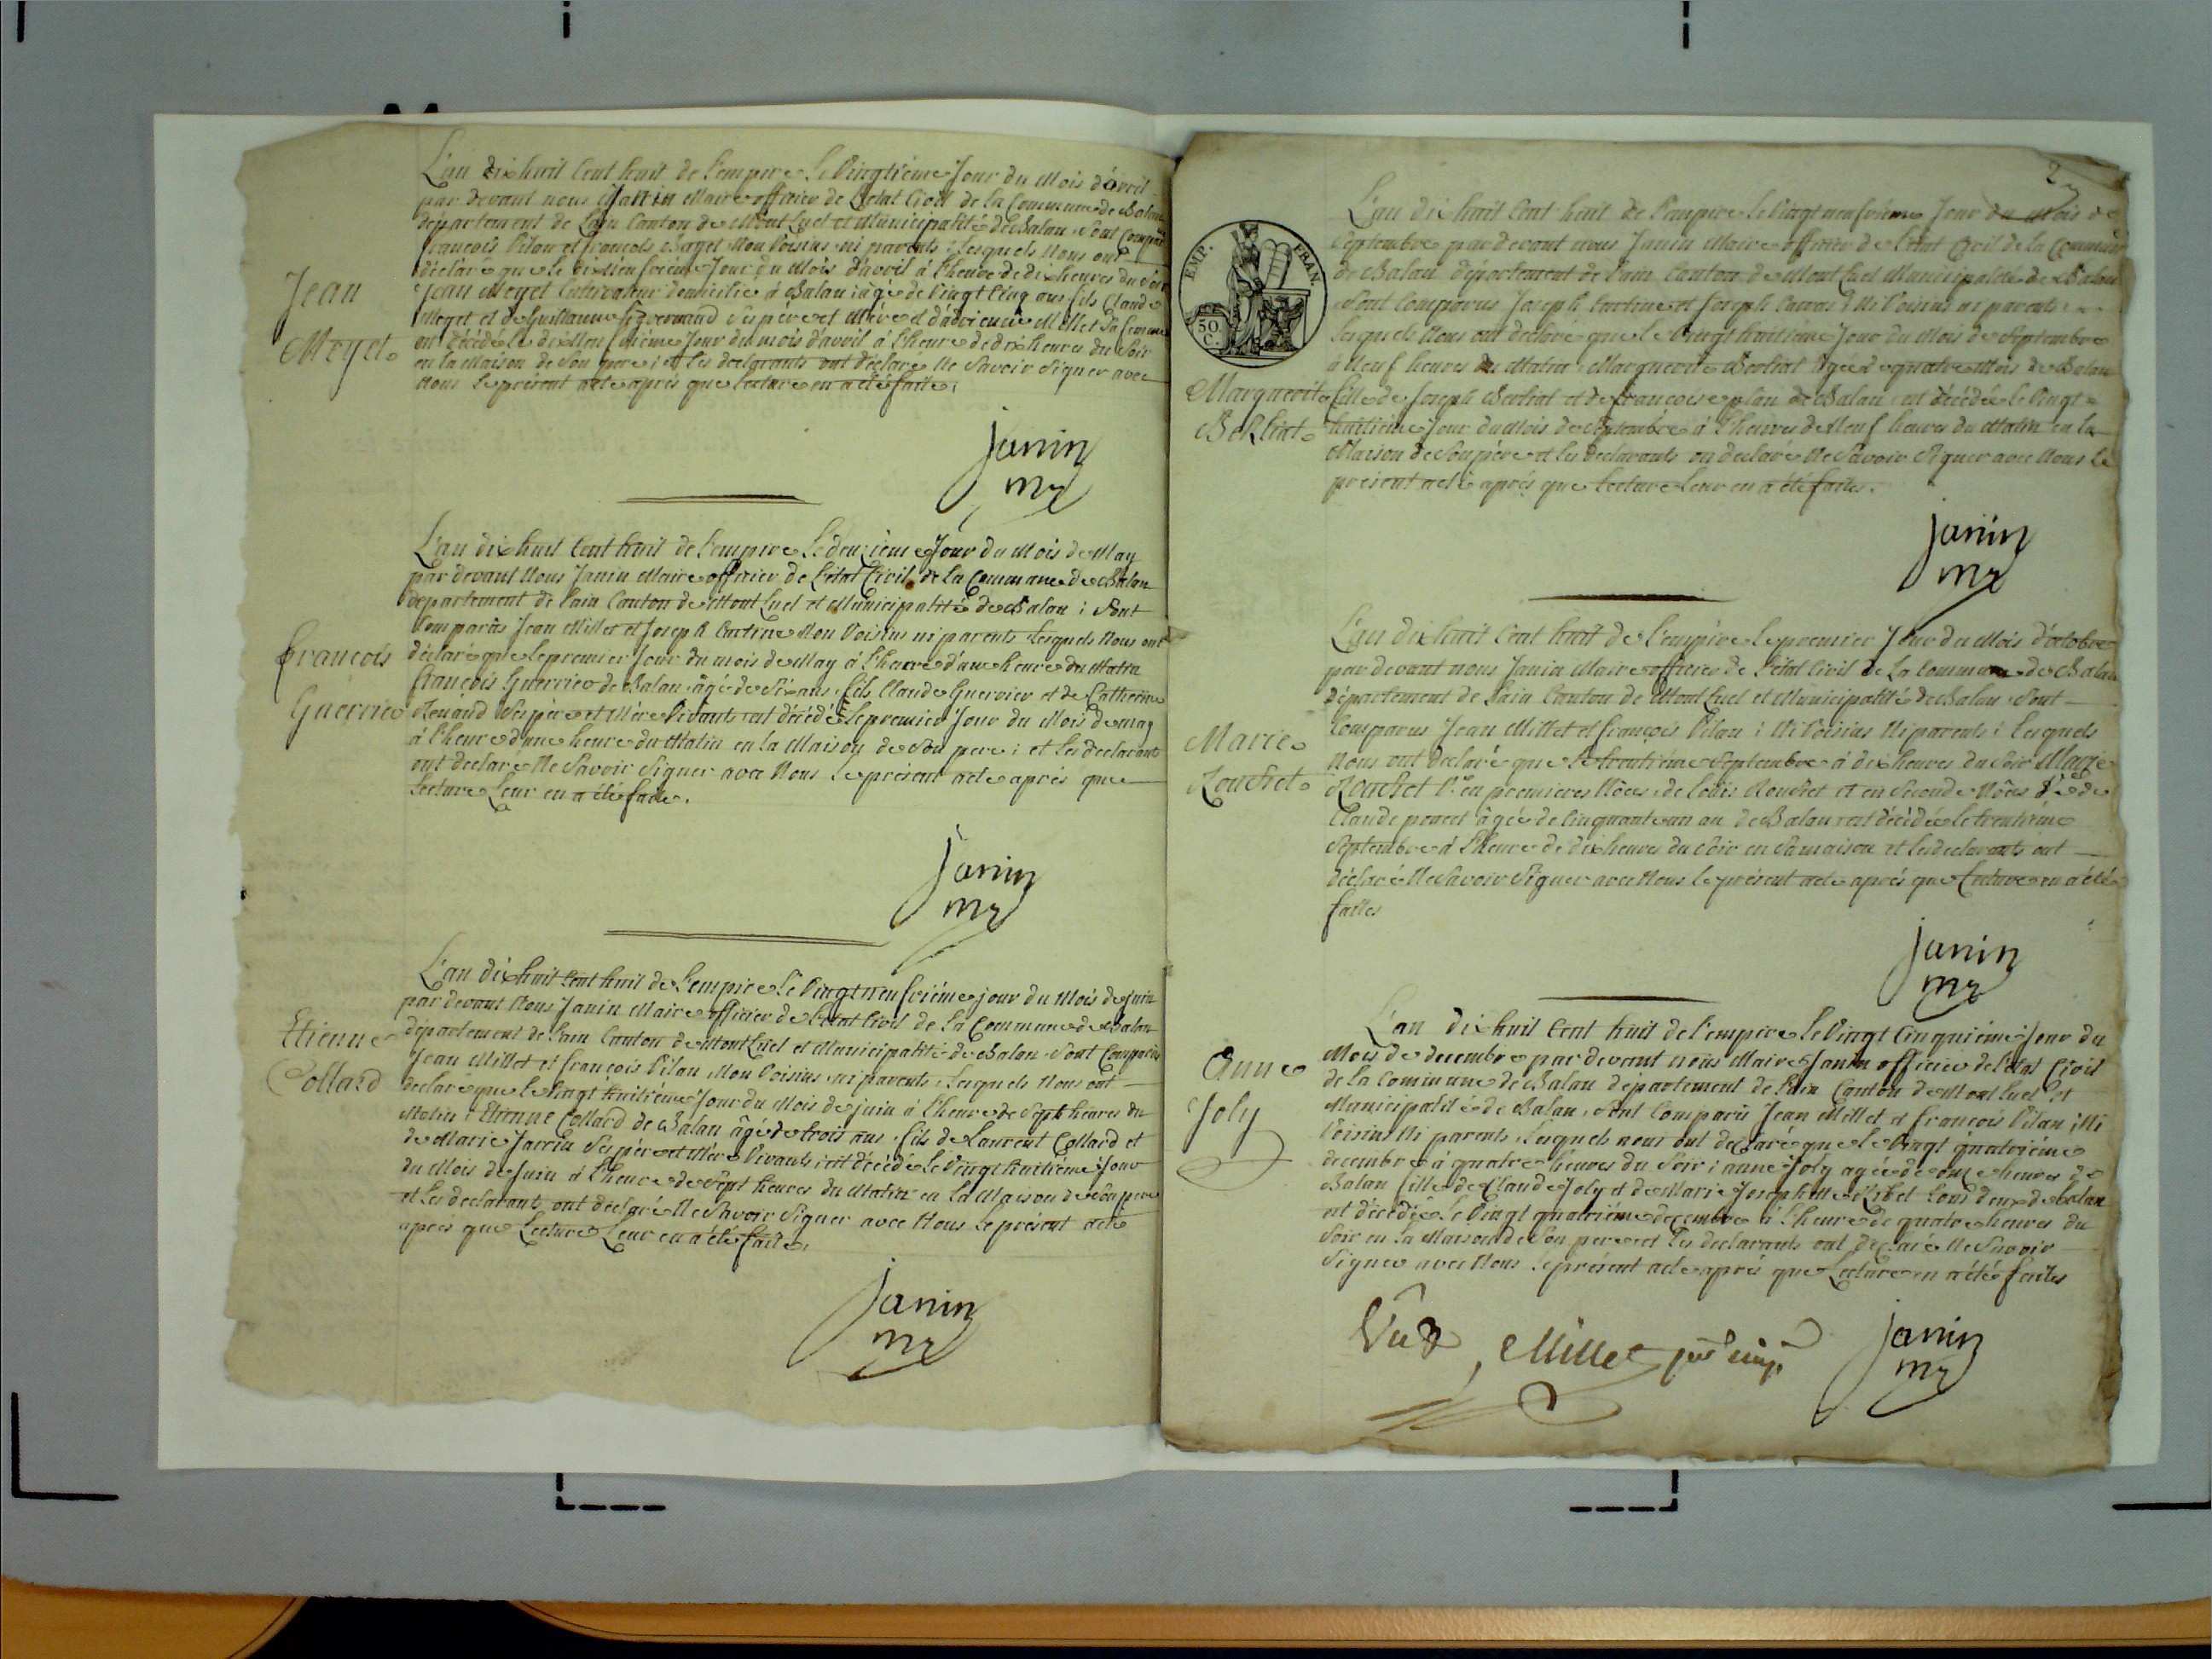 L'an dix huit Cent huit de L'empire Le Vingtième Jour du Mois d'avril
par devant nous Janin Maire officier de L'etat Civil de la Commune de Balan
département de L'ain Canton de Mont Luel et Municipalité de Balan, Sont Comparu
françois Pilan et françois Voisins ni parents, Lesquels Nous ont
déclaré que le dix neufvième Jour du Mois d'avril à l'heure de dix heures du Soir
Jean Meyet Cultivateur domicilié à Balan âgé de Vingt Cinq ans fils Claude
Meyet et de Guillaume Ses père et Mère et Millet Sa femme
est décédé le dix Neufvième Jour du mois d'avril à l'heure de dix heures du Soir
en la Maison de Son père ; et Les declarants ont déclaré Ne Savoir Signer avec
Nous Le présent acte après que Lecture en a été faite ;
Jean
Meyet
Janin
mr
L'an dix huit Cent huit de L'empire Le deuxieme Jour du Mois de May
par devant Nous Janin Maire officier de L'etat Civil de La Commune de Balan
departement de L'ain Canton de Mont Luel et Municipalité de Balan ; Sont
Comparûs Jean Millet et Joseph Non Voisins ni parents Lesquels Nous ont
déclaré que le premier Jour du mois de May à l'heure d'une heure du Matin
françois Guerrier de Balan âgé de Six ans, fils Claude Guerrier et de Catherine
Renaud Ses père et Mère Vivants est décédé Le premier Jour du Mois de may
à l'heure d'une heure du Matin en la Maison de Son pere ; et Les declarants
ont declare Ne Savoir Signer avec Nous Le présent acte après que
Lecture Leur en a été faite.
françois
Guerrier
Janin
mr
L'an dix huit Cent huit de L'empire Le Vingt neufvième jour du Mois de juin
par devant Nous Janin Maire officier de L'etat Civil de La Commune de Balan
département de L'ain Canton de Mont Luel et Municipalité de Balan Sont Comparûs
Jean Millet et françois Pilan, Non Voisins, ni parents, Lesquels Nous ont
declaré que le Vingt huitième Jour du Mois de juin à l'heure de Sept heures du
Matin ; Etienne Collard de Balan âgé de trois ans, fils de Laurent Collard et
de Marie Jarrin Ses père et Mère Vivants ; est décédé Le Vingt huitième Jour
du Mois de Juin à l'heure de Sept heures du Matin en La Maison de Son père
et Les declarants ont déclaré Ne Savoir Signer avec Nous Le présent acte
apres que Lecture Leur en a été faite.
Etienne
Collard
Janin
mr
2
L'an dix huit Cent huit de L'empire Le Vingt neufvième Jour du Mois de
Septembre par devant nous Janin Maire officier de L'etat Civil de la Commune
de Balan département de L'ain Canton de Mont Luel Municipalité de Balan
Sont Comparus Joseph et Joseph Ni Voisins ni parents
Lesquels Nous ont declaré que le Vingt huitième Jour du Mois de Septembre
à Neuf heures du Matin, Marguerite Berliat âgée de quatre Mois de Balan
fille de Joseph Berliat et de françoise pilan de Balan est décédée le Vingt
huitième Jour du Mois de Septembre à l'heure de Neuf heures du Matin en la
Maison de Son père et Les declarants ont declaré Ne Savoir Signer avec Nous Le
présent acte après que Lecture Leur en a été faites.
EMP. FRAN.
50.
C.
Marguerite
Berliat
Janin
mr
L'an dix huit Cent huit de L'empire Le premier Jour du Mois d'octobre
par devant nous Janin Maire officier de L'etat Civil de La Commune de Balan
département de L'ain Canton de Mont Luel et Municipalité de Balan, Sont
Comparus Jean Millet et françois Pilan ; Ni Voisins Ni parents ; Lesquels
Nous ont déclaré que Le trentième Septembre à dix heures du Soir Marie
Rouchet Ve en premieres Nôces de Louis Rouchet et en Seconde Nôces de
Claude âgée de Cinquante un an de Balan est décédée Le trentième
Septembre à l'heure de dix heures du Soir en Sa maison et Les declarants ont
déclaré Ne Savoir Signer avec Nous le présent acte après que Lecture en a été
faites
Marie
Rouchet
Janin
mr
L'an dix huit Cent huit de L'empire Le Vingt Cinquième Jour du
Mois de decembre par devant nous Maire Janin officier de L'etat Civil
de la Commune de Balan departement de L'ain Canton de Mont luel et
Municipalité de Balan, Sont Comparûs Jean Millet et françois Pilan, Ni
Voisins Ni parents, Lesquels nous ont declaré que le Vingt quatrième
decembre à quatre heures du Soir ; anne Joly agée de onze heures de
Balan fille de Claude Joly et de Marie Josephte tous deux de Balan
est décédée Le Vingt quatrième decembre à l'heure de quatre heures du
Soir en la Maison de Son pere et Les declarants ont declaré Ne Savoir
Signer avec Nous Le présent acte après que Lecture en a été faites
Anne
Joly
Vu Millet
Janin
mr